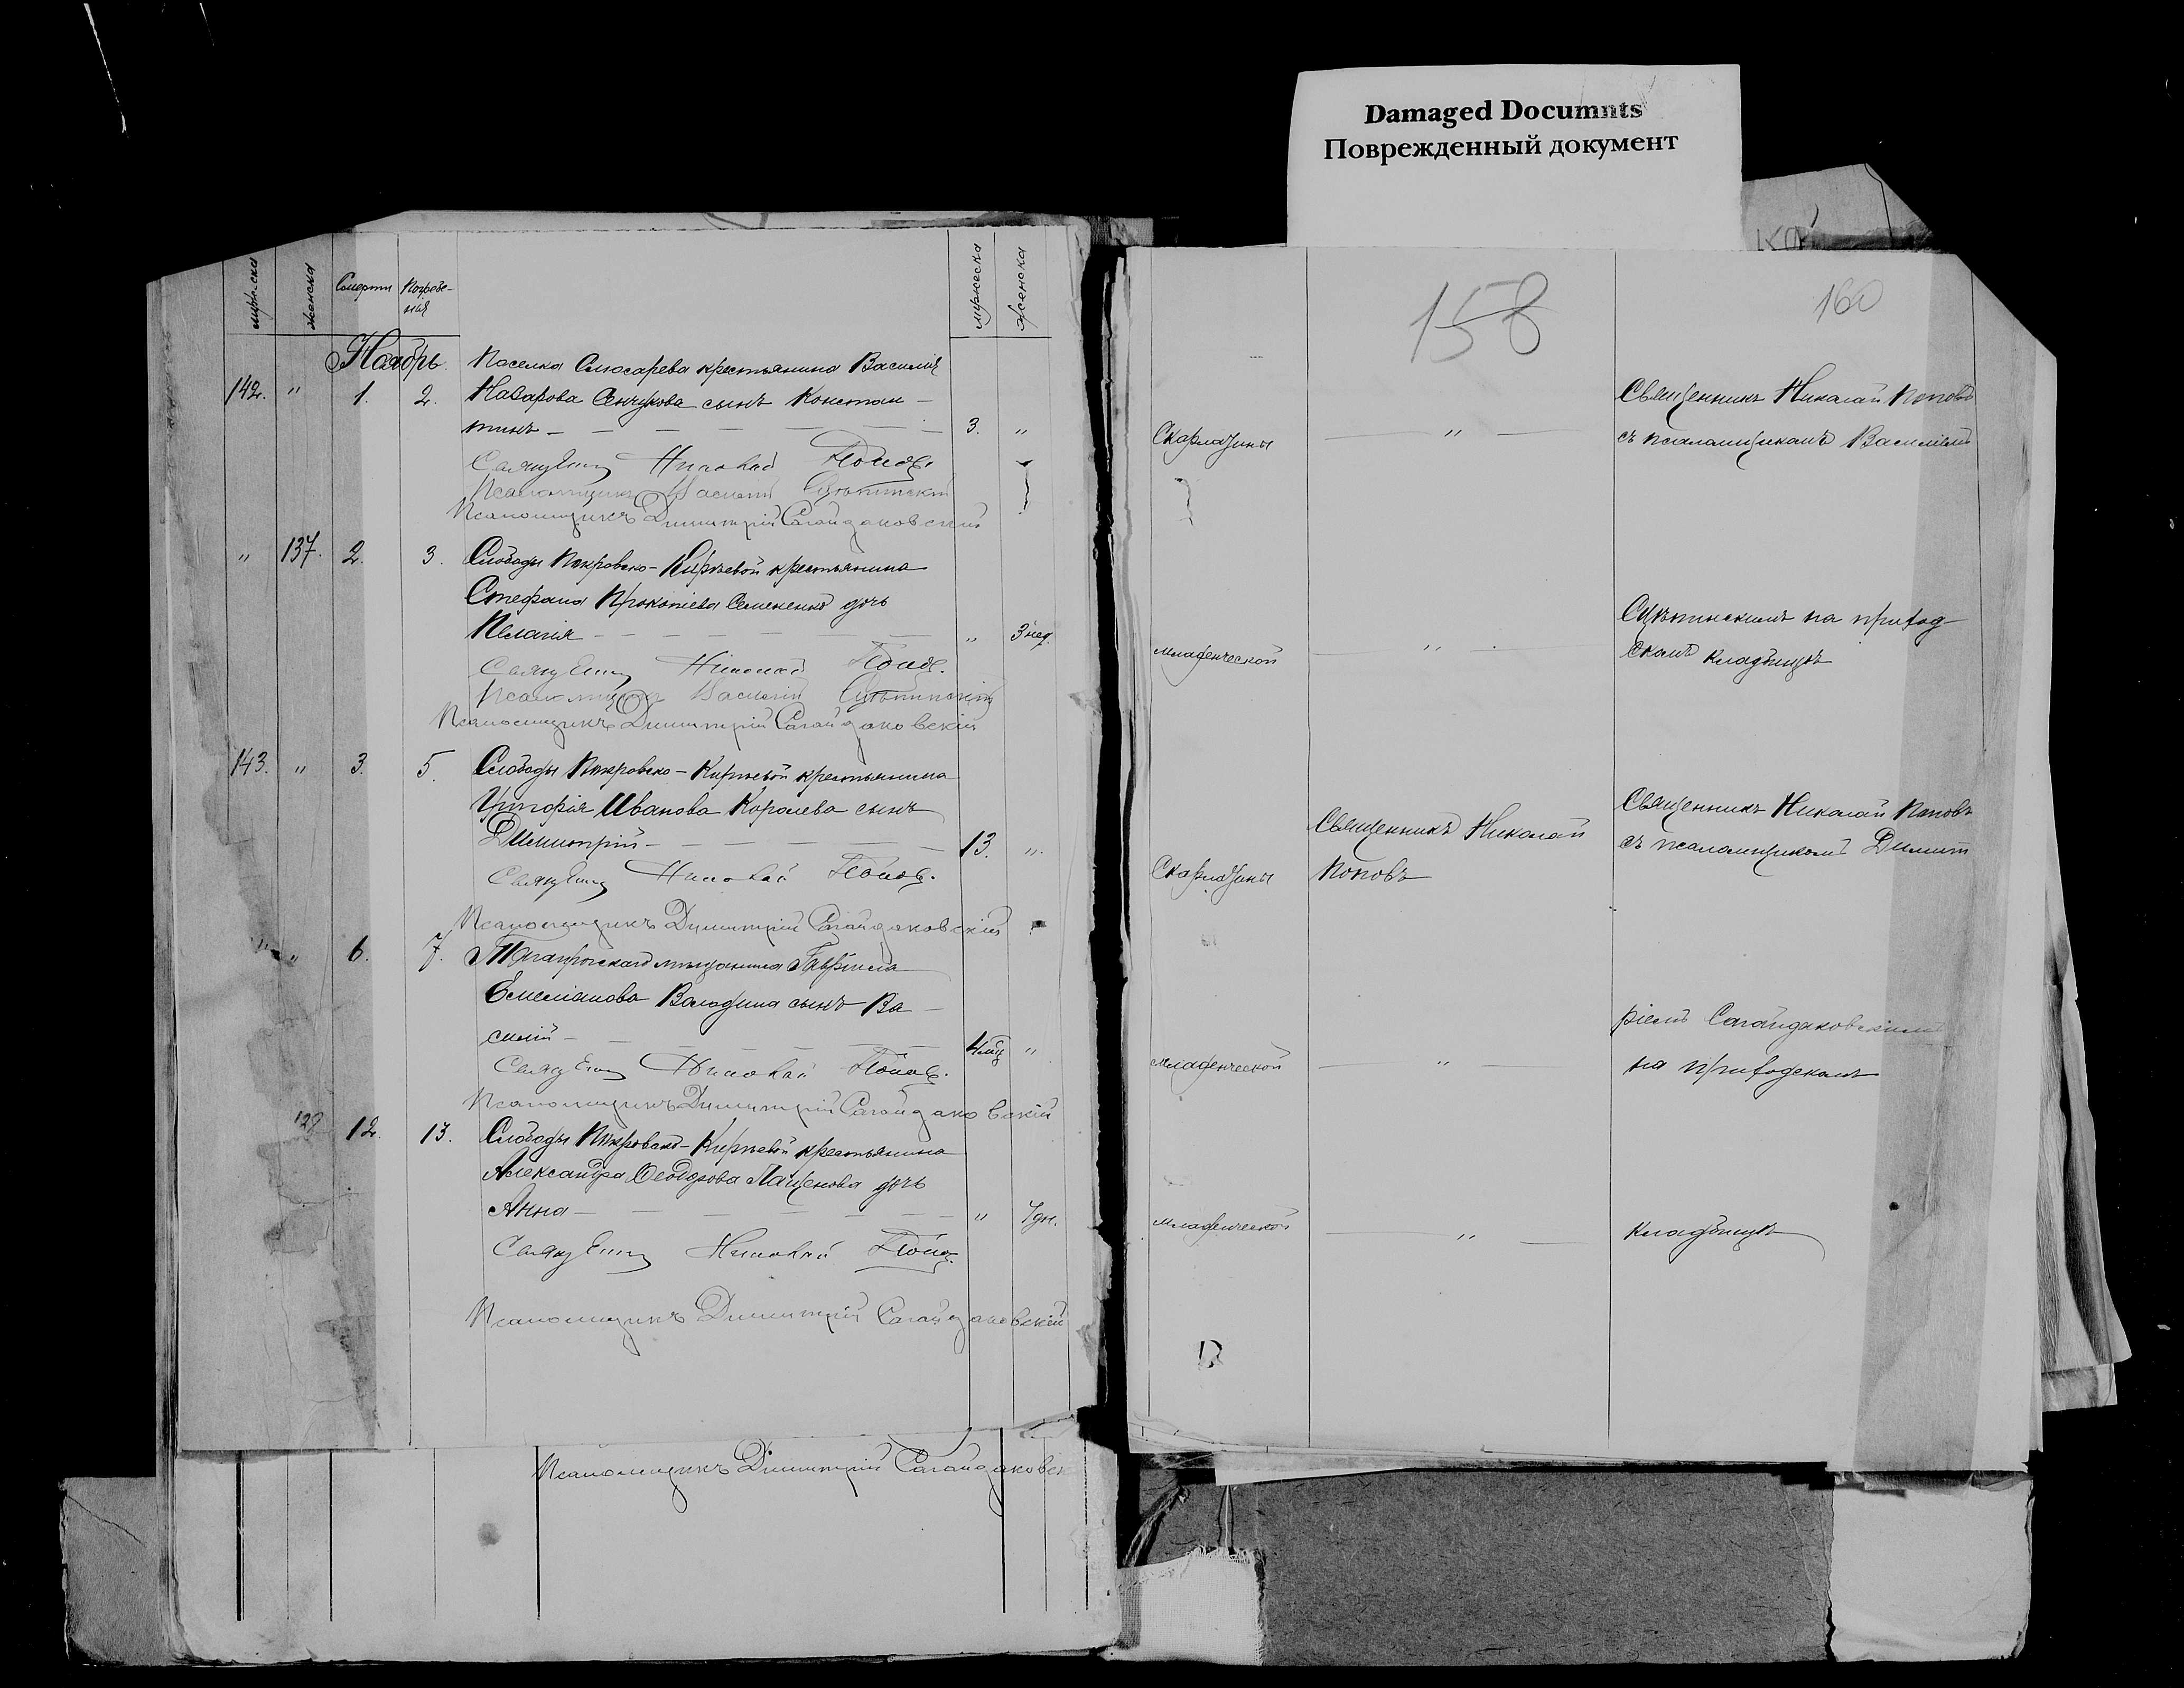 Damaged Documnts
Поврежденный документ
мужеска
женска
Смерти
Погребе-
нія
мужеска
женска
158
160
Ноябрь.
Поселка Слюсарева крестьянина Василія
142. " 1. 2. Назарова Сенчукова сынъ Констан-
тинъ 3. "
Священникъ Николай Поповъ
Псаломщикъ Василій
Псаломщикъ Димитрій Сагайдаковскій
" 137. 2. 3. Слободы Покровско-Киреевой крестьянина
Стефана Прокопіева Семененко дочь
Пелагія " 3 нед.
Священникъ Николай Поповъ
Псаломщикъ Василій
Псаломщикъ Димитрій Сагайдаковскій
143. " 3. 5. Слободы Покровско-Киреевой крестьянина
Григорія Иванова Королева сынъ
Димитрій 13. "
Священникъ Николай Поповъ
Псаломщикъ Димитрій Сагайдаковскій
" 6. 7. Таганрогскаго мѣщанина Гавріила
Емеліанова сынъ Ва-
силій 4 мц "
Священникъ Николай Поповъ
Псаломщикъ Димитрій Сагайдаковскій
12. 13. Слободы Покровско-Киреевой крестьянина
Александра Ѳеодорова Лащенова дочь
Анна " 7 дн.
Священникъ Николай Поповъ
Псаломщикъ Димитрій Сагайдаковскій
Псаломщикъ Димитрій Сагайдаковск
Священникъ Николай Поповъ
Скарлатины " съ псаломщикомъ Василіемъ
на приход-
Младенческой " скомъ кладбищѣ
Священникъ Николай Поповъ
Священникъ Николай съ псаломщикомъ Димит
Скарлатины Поповъ
ріемъ Сагайдаковскимъ
Младенческой " на приходскомъ
Младенческой " кладбищѣ